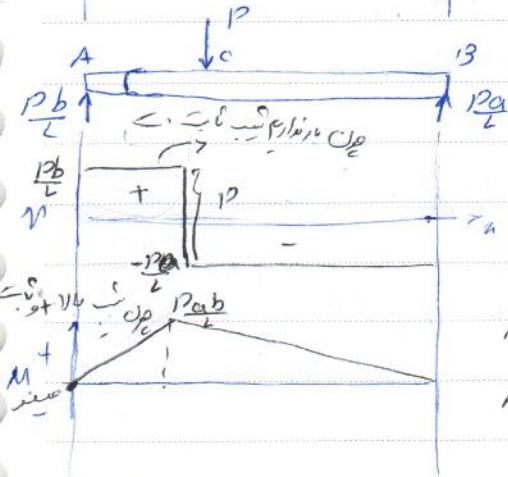 P
A C B
Pb/L Pa/L
چون بار نداریم شیب ثابت
Pb/L
+ P
V x
-
-Pa/L
چون شیب بالا + و ثابت
Pab/L
M +
صفر